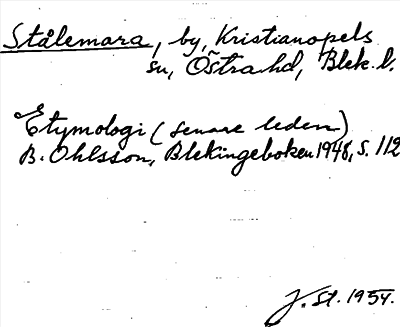 Stålemara, by, Kristianopels
sn, Östra hd, Blek. l.
Etymologi (senare leden)
B. Ohlsson, Blekingeboken 1948, s. 112
J. St. 1954.